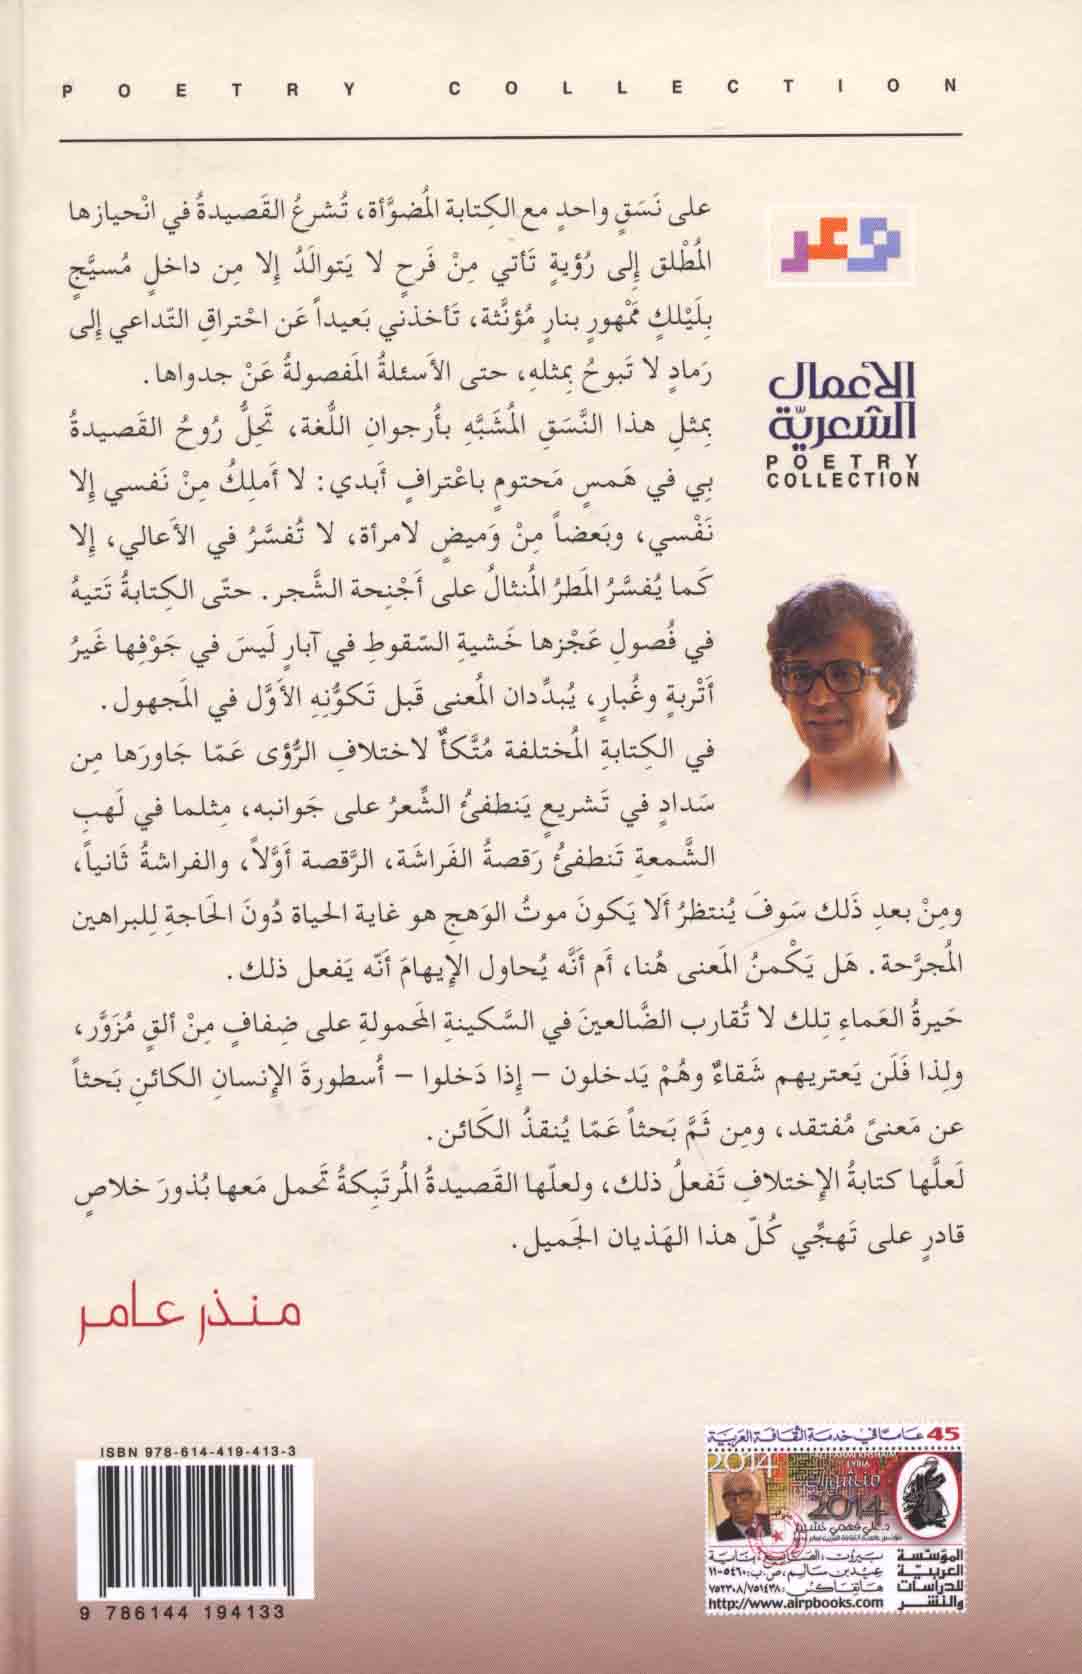 POETRY COLLECTION
على نَسَقٍ واحدٍ مع الكِتابة المُضوَّأة، تُشرعُ القَصيدةُ في انْحيازها
المُطْلق إِلى رُؤيةٍ تَأتي مِنْ فَرحٍ لا يَتوالَدُ إلا مِن داخلٍ مُسيَّجٍ
بلَيْلكٍ مَمْهورٍ بنارٍ مُؤنَّثة، تَأخذني بَعيداً عَن احْتراقِ التّداعي إِلى
رَمادٍ لا تَبوحُ بِمثلهِ، حتى الأَسئلةُ المَفصولةُ عَنْ جدواها.
بِمثلِ هذا النَّسَقِ المُشَبَّهِ بأُرجوانِ اللُّغة، تَحِلُّ رُوحُ القَصيدةُ
بِي في هَمسٍ مَحتومٍ باعْترافٍ أبَدي: لا أملِكُ مِنْ نَفسي إِلا
نَفْسي، وبَعضاً مِنْ وَميضٍ لامرأة، لا تُفسَّرُ في الأعالي، إِلا
كَما يُفسَّرُ المَطرُ المُنثالُ على أجْنِحة الشَّجر. حتّى الكِتابةُ تَتيهُ
في فُصولِ عَجْزها خَشيةِ السّقوطِ في آبارٍ لَيسَ في جَوْفِها غَيرُ
أتْربةٍ وغُبارٍ، يُبدِّدان المُعنى قَبل تَكوُّنِهِ الأوَّل في المَجهول.
في الكِتابةِ المُختلفة مُتَّكأٌ لاختلافِ الرُّؤى عَمّا جَاورَها مِن
سَدادٍ في تَشريعٍ يَنطفئُ الشِّعرُ على جَوانبه، مِثلما في لَهبِ
الشَّمعةِ تَنطفئُ رَقصةُ الفَراشَة، الرَّقصة أوَّلاً، والفراشةُ ثَانياً،
ومِنْ بعدِ ذَلك سَوفَ يُنتظرُ ألا يَكونَ موتُ الوَهجِ هو غاية الحياة دُونَ الحَاجةِ لِلبراهين
المُجرَّحة. هَل يَكْمنُ المَعنى هُنا، أم أنَّه يُحاول الإيهامَ أنّه يَفعل ذلك.
حَيرةُ العَماءِ تِلك لا تُقارب الضَّالعينَ في السَّكينةِ المَحمولةِ على ضِفافٍ مِنْ ألقٍ مُزَوَّر،
ولِذا فَلَن يَعتريهم شَقاءٌ وهُمْ يَدخلون – إذا دَخلوا – أُسطورةَ الإنسانِ الكائنِ بَحثاً
عن مَعنىً مُفتقد، ومِن ثَمَّ بَحثاً عَمّا يُنقذُ الكَائن.
لَعلَّها كتابةُ الإختلافِ تَفعلُ ذلك، ولعلّها القَصيدةُ المُرتَبِكةُ تَحمل مَعها بُذورَ خلاصٍ
قادرٍ على تَهجِّي كُلّ هذا الهَذيان الجَميل.
منذر عامر
الأعمال
الشعريّة
POETRY
COLLECTION
ISBN 978-614-419-413-3
9 786144 194133
45 عاماً في خدمة الثقافة العربية
2014
2014
المؤسسة
العربية
للدراسات
والنشر
بيروت، الصنايع، بناية
عيد بن سالم، ص.ب: ٥٤٦٠-١١
هاتفاكس: ٧٥١٤٣٨/٧٥٢٣٠٨
http://www.airpbooks.com